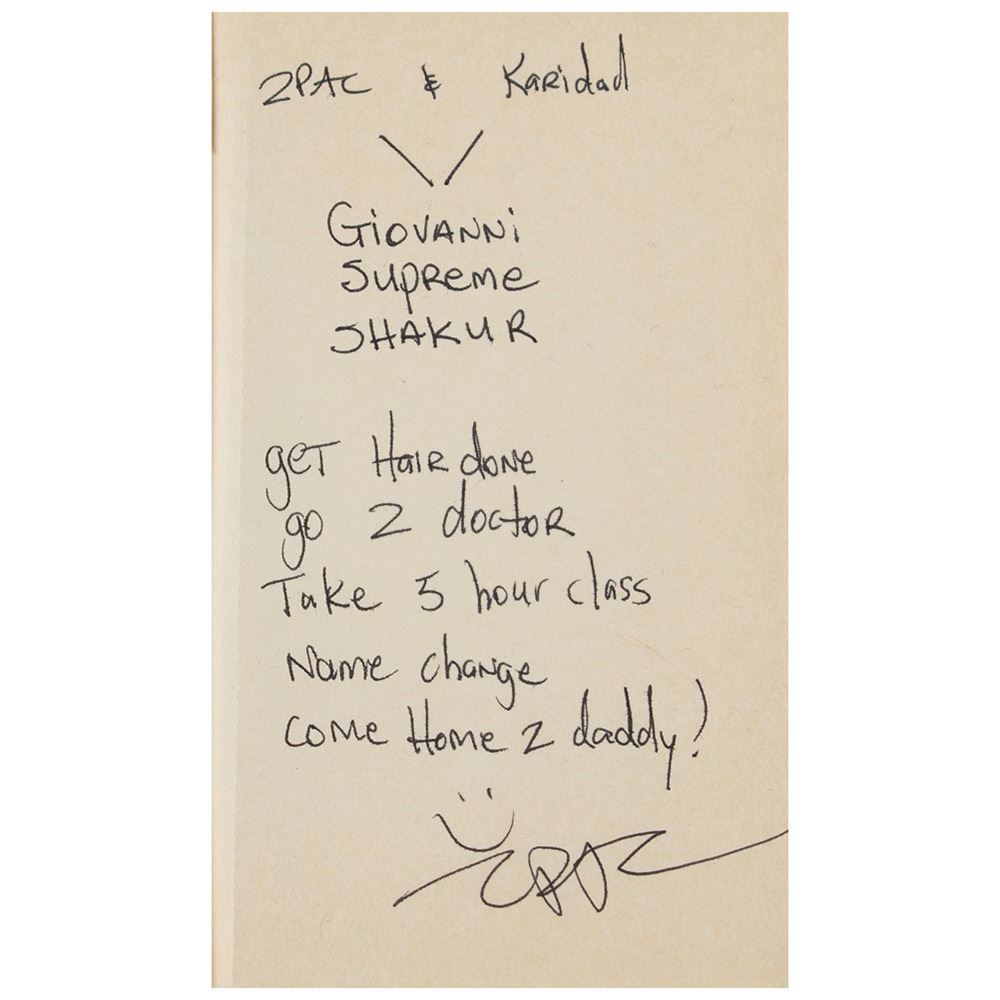 2PAC & Karidad
Giovanni
Supreme
SHAKUR
get Hair done
go 2 doctor
Take 5 hour class
Name change
Come Home 2 daddy!
2PAC